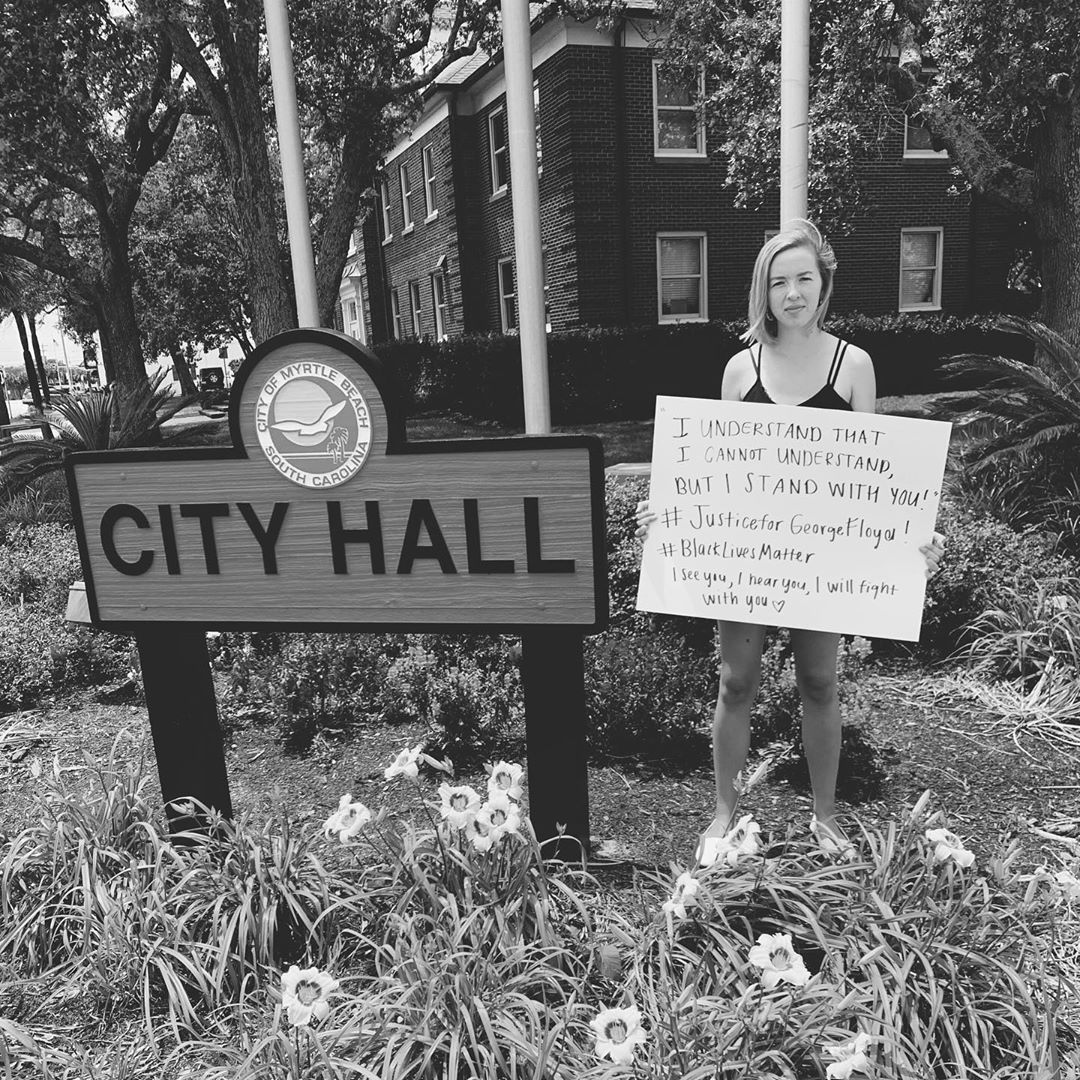 CITY OF MYRTLE BEACH
SOUTH CAROLINA
CITY HALL
"I UNDERSTAND THAT
I CANNOT UNDERSTAND,
BUT I STAND WITH YOU!"
#JusticeforGeorgeFloyd!
#BlackLivesMatter
I see you, I hear you, I will fight
with you♡